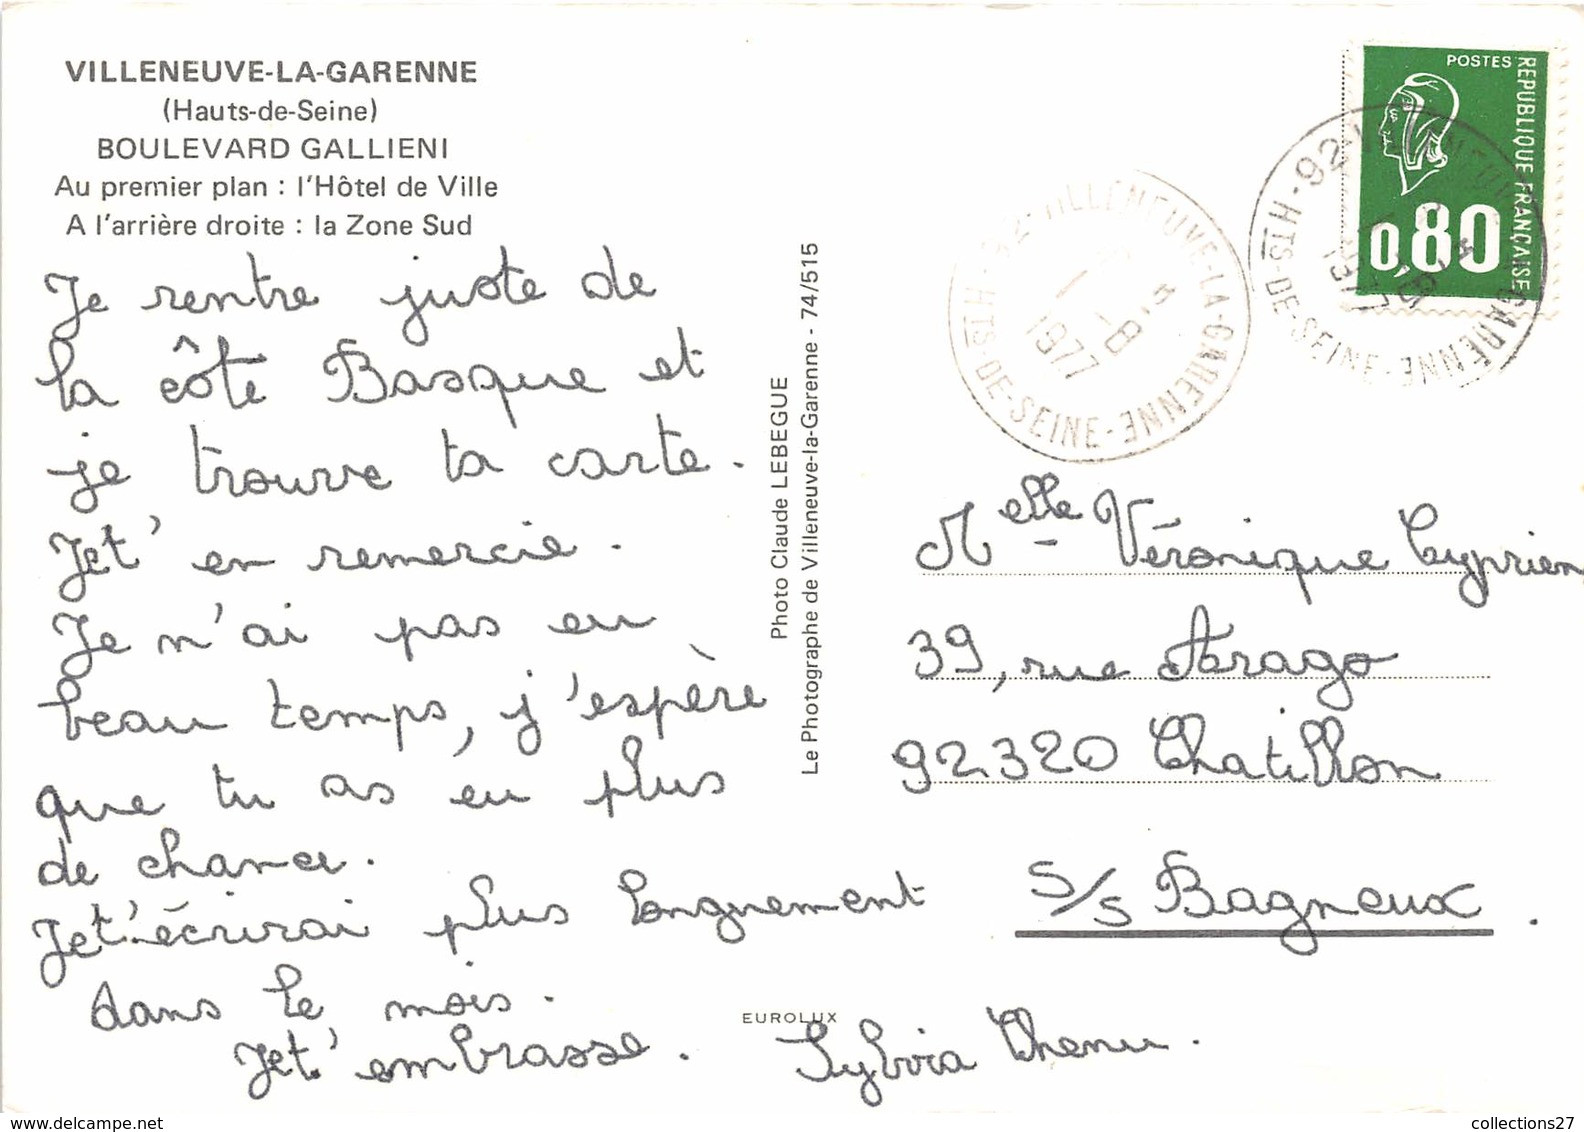 VILLENEUVE-LA-GARENNE
(Hauts-de-Seine)
BOULEVARD GALLIENI
Au premier plan : l'Hôtel de Ville
A l'arrière droite : la Zone Sud
Je rentre juste de
la côte Basque et
je trouve ta carte.
Je t'en remercie.
Je n'ai pas eu
beau temps, j'espère
que tu as eu plus
de chance.
Je t'écrirai plus longuement
dans le mois.
Je t'embrasse. Sylvia Chenu.
Photo Claude LEBEGUE
Le Photographe de Villeneuve-la-Garenne - 74/515
EUROLUX
POSTES
REPUBLIQUE FRANÇAISE
0,80
92 VILLENEUVE-LA-GARENNE
HTS-DE-SEINE
1977
92 VILLENEUVE-LA-GARENNE
HTS-DE-SEINE
1977
Melle Véronique Cyprien
39, rue Arago
92320 Chatillon
s/s Bagneux.
collections27